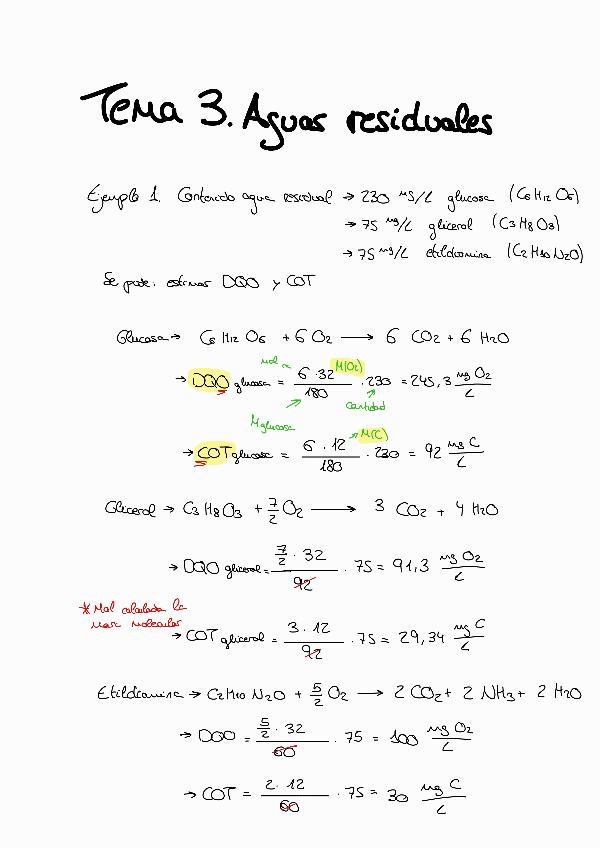 Tema 3. Aguas residuales
Ejemplo 1. Contenido agua residual → 230 mg/L glucosa (C6H12O6)
→ 75 mg/L glicerol (C3H8O3)
→ 75 mg/L etildiamina (C2H10N2O)
Se pide: estimar DQO y COT
Glucosa → C6H12O6 + 6O2 → 6 CO2 + 6 H2O
mol M(O2)
→ DQO glucosa = 6·32 / 180 · 230 = 245,3 mg O2 / L
M glucosa cantidad
→ M(C)
→ COT glucosa = 6·12 / 180 · 230 = 92 mg C / L
Glicerol → C3H8O3 + 7/2 O2 → 3 CO2 + 4 H2O
→ DQO glicerol = 7/2 · 32 / 92 · 75 = 91,3 mg O2 / L
* Mal calculada la
masa molecular
→ COT glicerol = 3·12 / 92 · 75 = 29,34 mg C / L
Etildiamina → C2H10N2O + 5/2 O2 → 2 CO2 + 2 NH3 + 2 H2O
→ DQO = 5/2 · 32 / 60 · 75 = 100 mg O2 / L
→ COT = 2·12 / 60 · 75 = 30 mg C / L